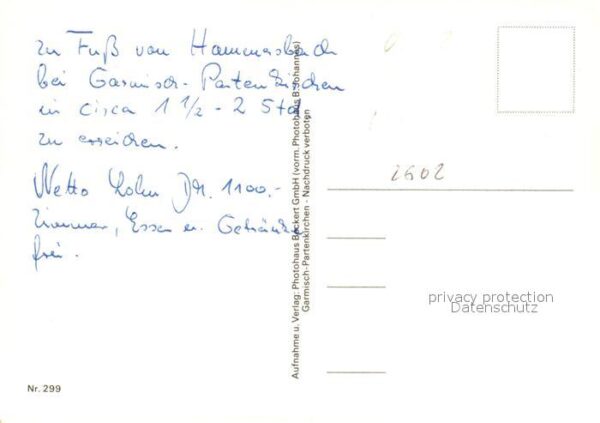 zu Fuß von Hammersbach
bei Garmisch-Partenkirchen
in circa 1 1/2 - 2 Std
zu erreichen.
Netto Lohn DM. 1100.-
Zimmer, Essen u. Getränke
frei.
Aufnahme u. Verlag: Photohaus Beckert GmbH (vorm. Photohaus B. Johannes)
Garmisch-Partenkirchen · Nachdruck verboten
2602
privacy protection
Datenschutz
Nr. 299